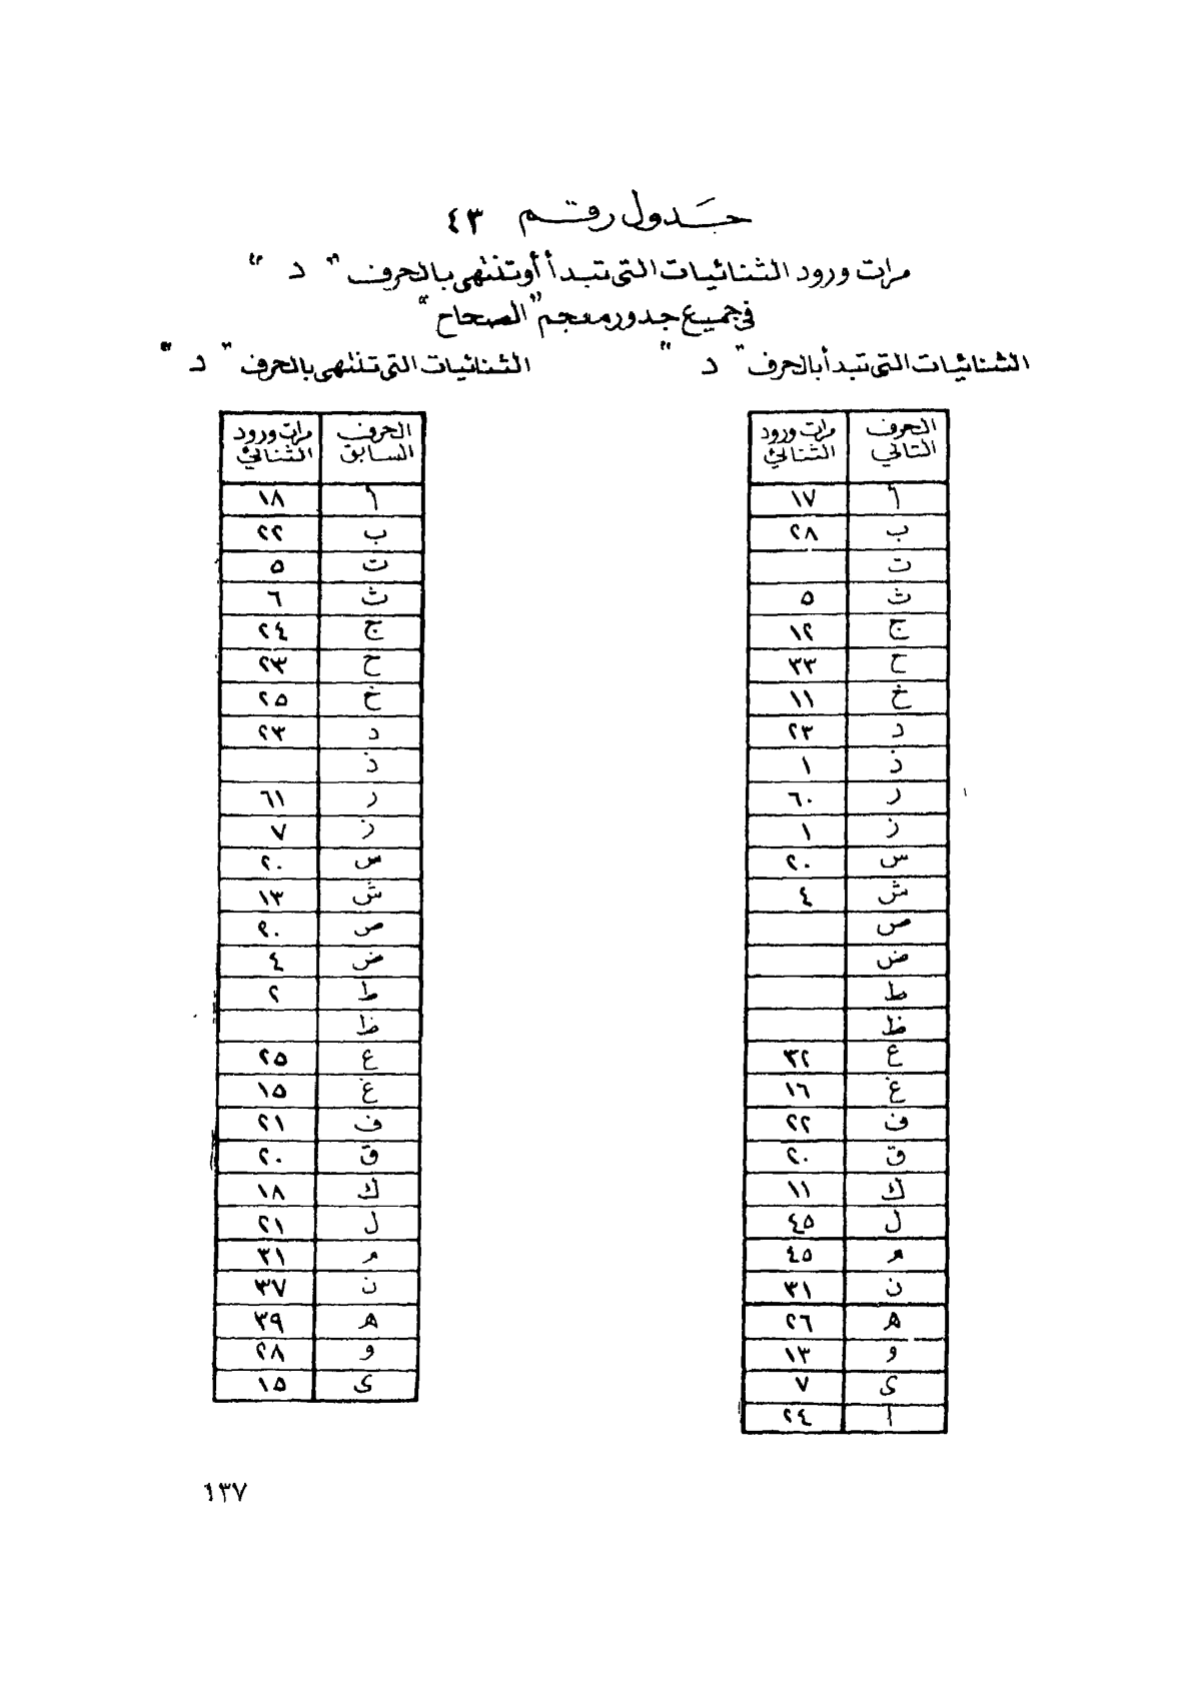 جدول رقم ٤٣
مرات ورود الثنائيات التى تبدأ أو تنتهى بالحرف " د "
فى جميع جذور معجم "الصحاح"
الثنائيات التى تبدأ بالحرف " د "
الحرف التالي مرات ورود الثنائي
أ ١٧
ب ٢٨
ت
ث ٥
ج ١٢
ح ٣٣
خ ١١
د ٢٣
ذ ١
ر ٦٠
ز ١
س ٢٠
ش ٤
ص
ض
ط
ظ
ع ٣٢
غ ١٦
ف ٢٢
ق ٢٠
ك ١١
ل ٤٥
م ٤٥
ن ٣١
ه ٢٦
و ١٣
ى ٧
ا ٢٤
الثنائيات التى تنتهى بالحرف " د "
الحرف السابق مرات ورود الثنائي
أ ١٨
ب ٢٢
ت ٥
ث ٦
ج ٢٤
ح ٢٣
خ ٢٥
د ٢٣
ذ
ر ٦١
ز ٧
س ٢٠
ش ١٣
ص ٢٠
ض ٤
ط ٢
ظ
ع ٢٥
غ ١٥
ف ٢١
ق ٢٠
ك ١٨
ل ٢١
م ٣١
ن ٣٧
ه ٣٩
و ٢٨
ى ١٥
١٣٧